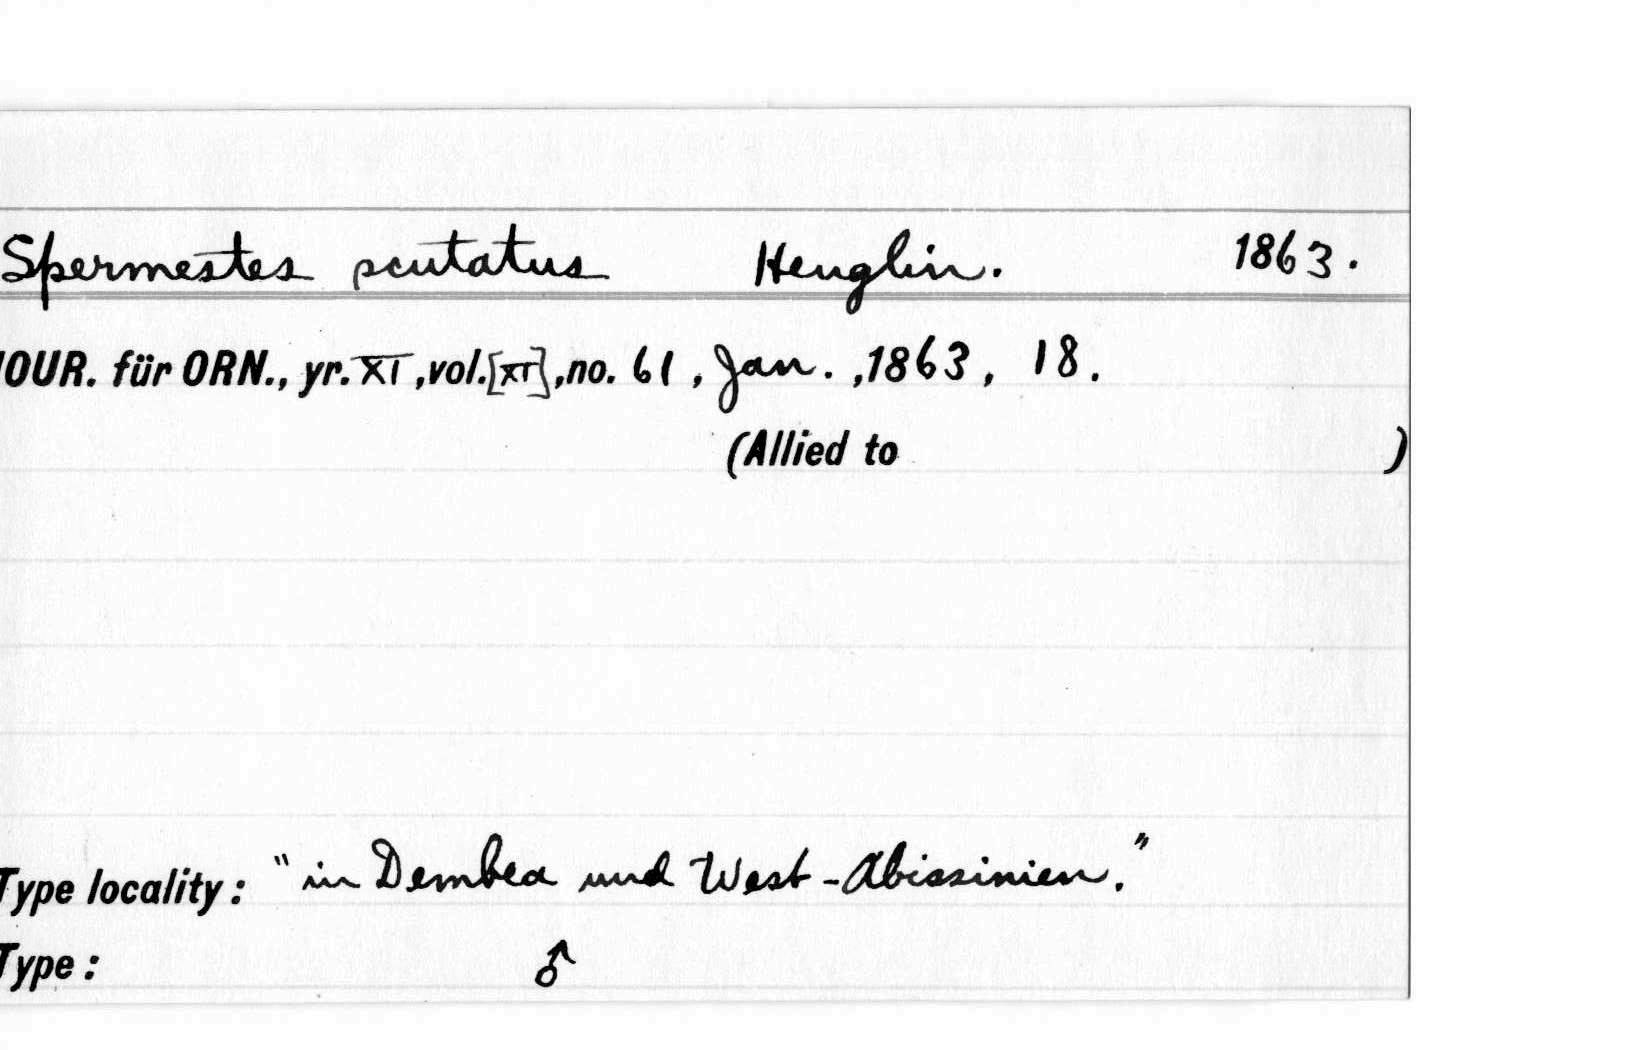 Spermestes scutatus Heuglin. 1863.
JOUR. für ORN., yr. XI, vol. [XI], no. 61, Jan., 1863, 18.
(Allied to )
Type locality: "in Dembea und West-Abissinien."
Type: ♂